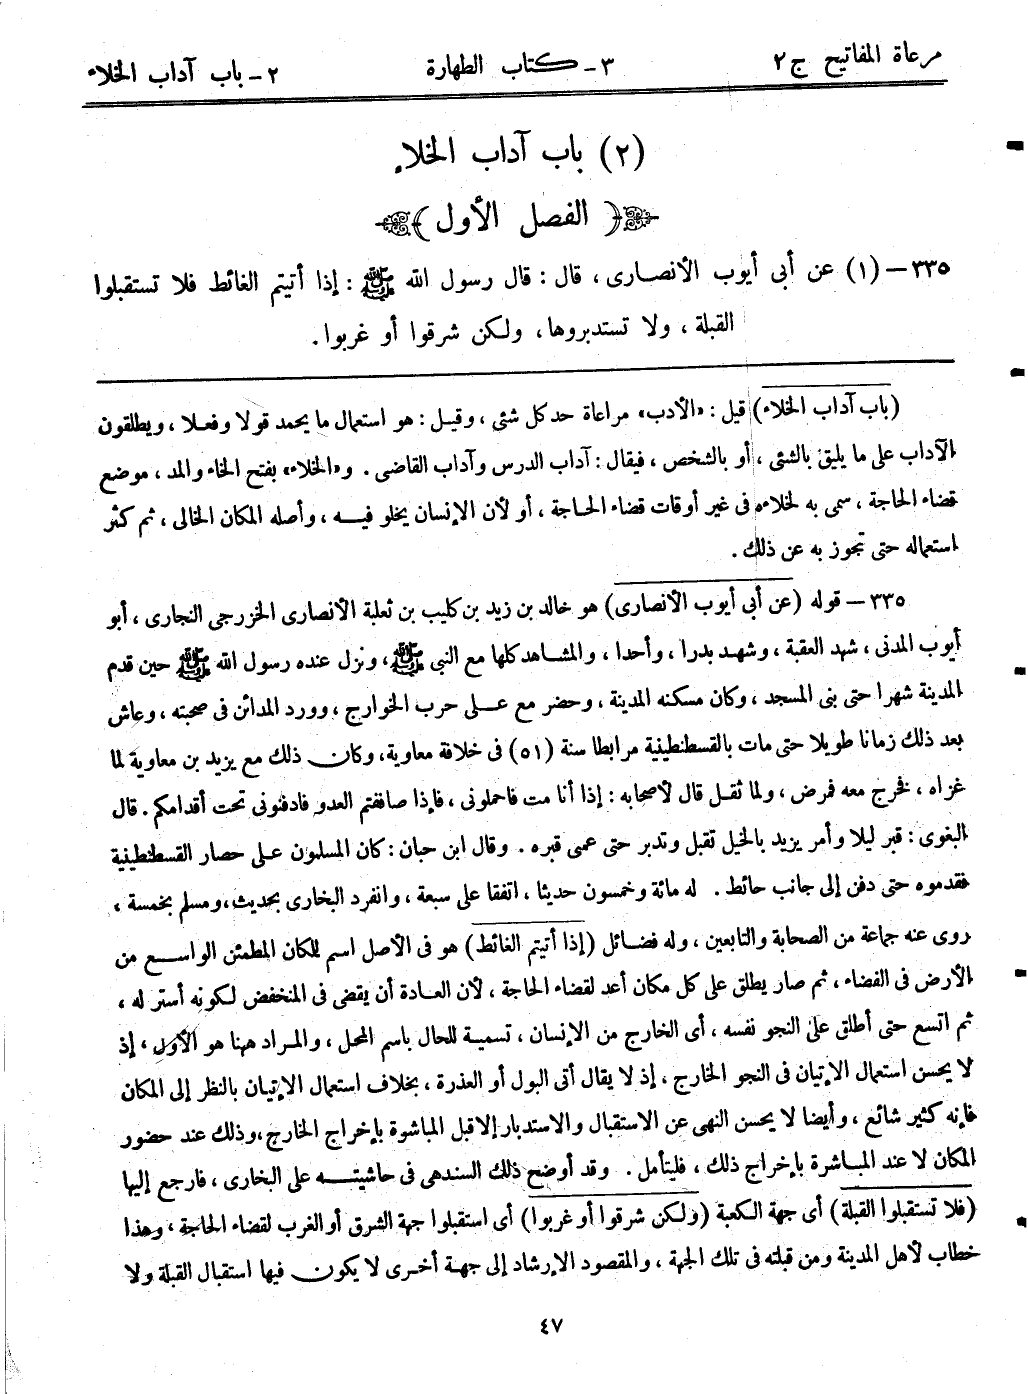 مرعاة المفاتيح ج ٢ ٣ - كتاب الطهارة ٢ - باب آداب الخلاء
(٢) باب آداب الخلاء
﴿ الفصل الأول ﴾
٣٣٥ – (١) عن أبى أيوب الأنصارى ، قال : قال رسول الله ﷺ : إذا أتيتم الغائط فلا تستقبلوا
القبلة ، ولا تستدبروها، ولكن شرقوا أو غربوا .
(باب آداب الخلاء) قيل : «الأدب» مراعاة حد كل شئى ، وقيل : هو استعمال ما يحمد قولا وفعلا ، ويطلقون
الآداب على ما يليق بالشئى ، أو بالشخص ، فيقال : آداب الدرس وآداب القاضى . و«الخلاء» بفتح الخاء والمد ، موضع
قضاء الحاجة ، سمى به لخلاءه فى غير أوقات قضاء الحاجة ، أو لأن الإنسان يخلو فيه ، وأصله المكان الخالى ، ثم كثر
استعماله حتى تجوز به عن ذلك .
٣٣٥ – قوله (عن أبى أيوب الأنصارى) هو خالد بن زيد بن كليب بن ثعلبة الأنصارى الخزرجى النجارى ، أبو
أيوب المدنى ، شهد العقبة ، وشهد بدرا ، وأحدا ، والمشاهد كلها مع النبى ﷺ، ونزل عنده رسول الله ﷺ حين قدم
المدينة شهرا حتى بنى المسجد ، وكان مسكنه المدينة ، وحضر مع على حرب الخوارج ، وورد المدائن فى صحبته ، وعاش
بعد ذلك زمانا طويلا حتى مات بالقسطنطينية مرابطا سنة (٥١) فى خلافة معاوية، وكان ذلك مع يزيد بن معاوية لما
غزاه ، فخرج معه فمرض ، ولما ثقل قال لأصحابه : إذا أنا مت فاحملونى ، فإذا صاففتم العدو فادفنونى تحت أقدامكم . قال
البغوى : قبر ليلا وأمر يزيد بالخيل تقبل وتدبر حتى عمى قبره . وقال ابن حبان : كان المسلمون على حصار القسطنطينية
فقدموه حتى دفن إلى جانب حائط . له مائة وخمسون حديثا ، اتفقا على سبعة ، وانفرد البخارى بحديث، ومسلم بخمسة ،
روى عنه جماعة من الصحابة والتابعين ، وله فضائل (إذا أتيتم الغائط) هو فى الأصل اسم للمكان المطمئن الواسع من
الأرض فى الفضاء ، ثم صار يطلق على كل مكان أعد لقضاء الحاجة ، لأن العادة أن يقضى فى المنخفض لكونه أستر له ،
ثم اتسع حتى أطلق على النجو نفسه ، أى الخارج من الإنسان ، تسمية للحال باسم المحل ، والمراد ههنا هو الأول ، إذ
لا يحسن استعمال الإتيان فى النجو الخارج ، إذ لا يقال أتى البول أو العذرة ، بخلاف استعمال الإتيان بالنظر إلى المكان
فإنه كثير شائع ، وأيضا لا يحسن النهى عن الاستقبال والاستدبار إلا قبل المباشرة بإخراج الخارج، وذلك عند حضور
المكان لا عند المباشرة بإخراج ذلك ، فليتأمل . وقد أوضح ذلك السندهى فى حاشيته على البخارى ، فارجع إليها
(فلا تستقبلوا القبلة) أى جهة الكعبة (ولكن شرقوا أو غربوا) أى استقبلوا جهة الشرق أو الغرب لقضاء الحاجة ، وهذا
خطاب لأهل المدينة ومن قبلته فى تلك الجهة ، والمقصود الإرشاد إلى جهة أخرى لا يكون فيها استقبال القبلة ولا
٤٧